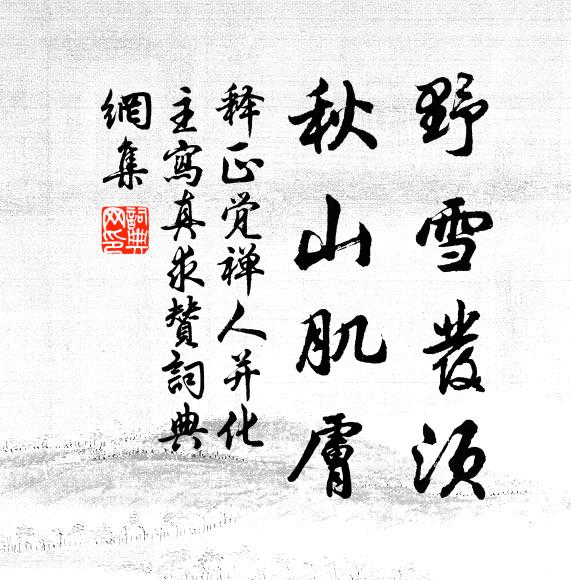 野雪发须
秋山肌膚
释正觉禅人并化
主寫真求贊詞典
網集
詞典網印